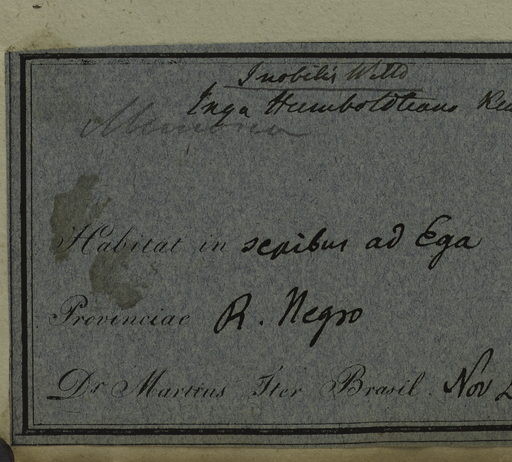 I nobilis Willd
Inga Humboldteana
Mimosa
Habitat in sepibus ad Ega
Provinciae R. Negro
Dr Martius Iter Brasil. Nov